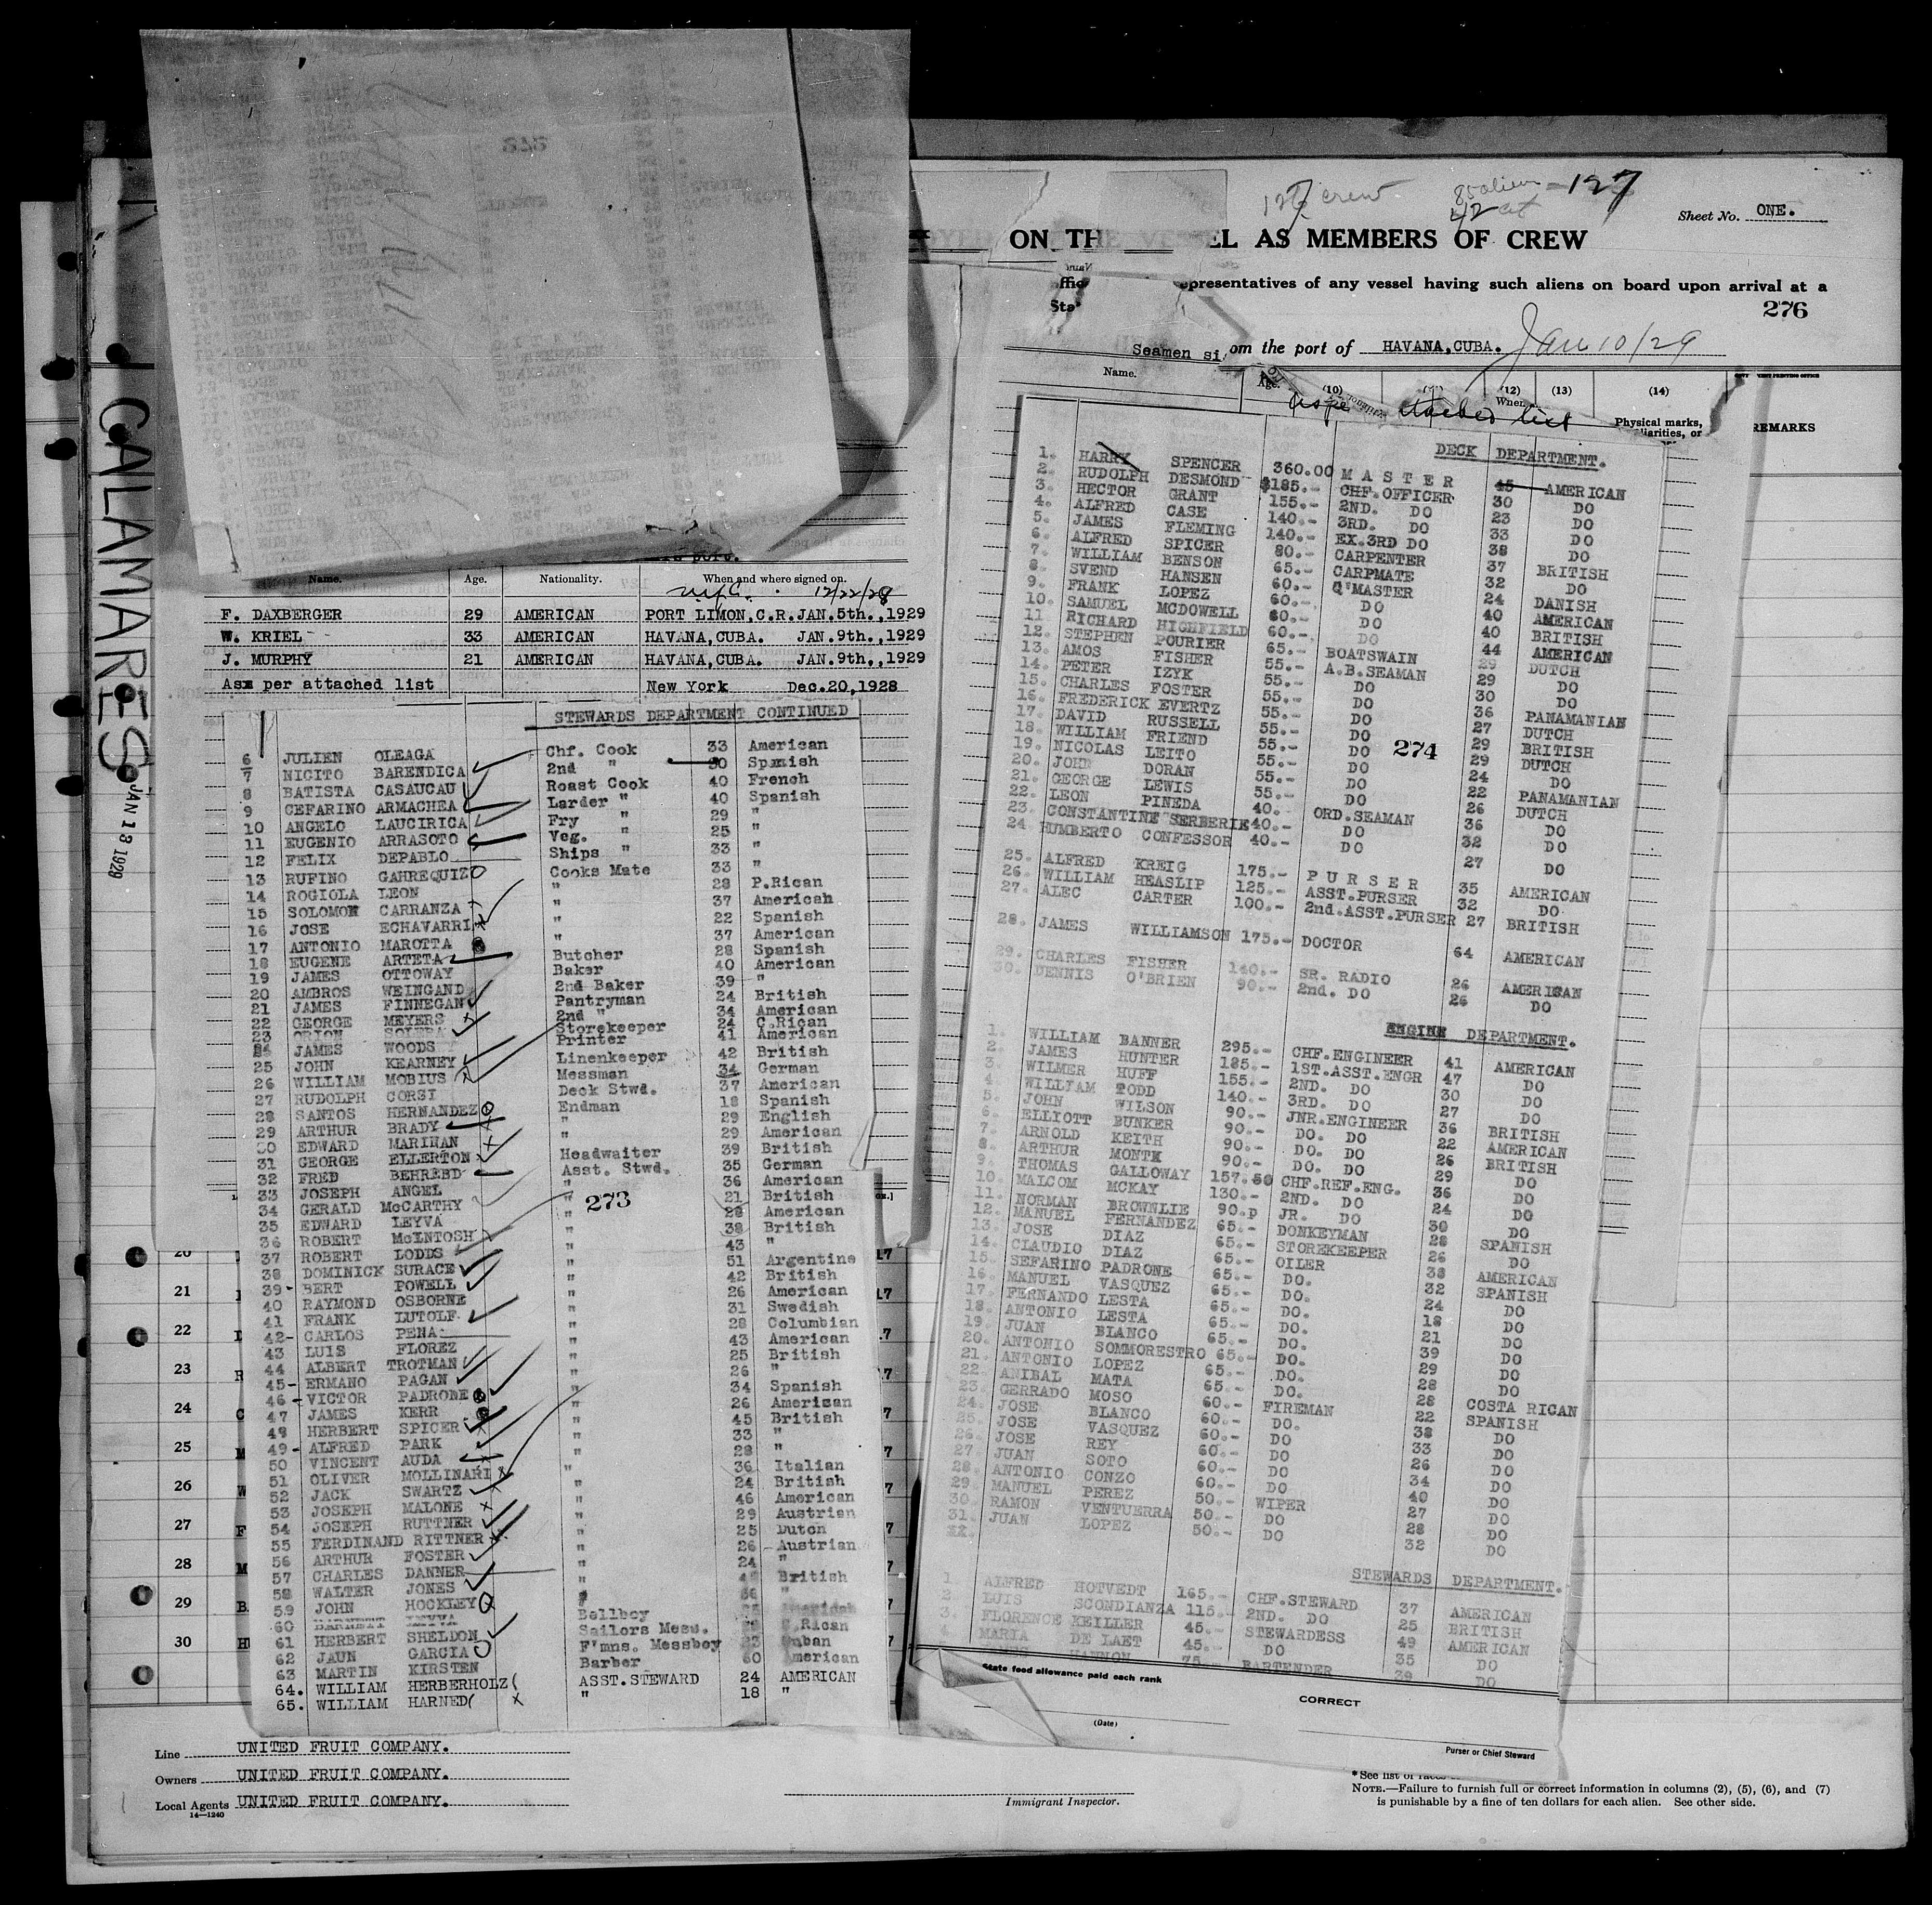 127 crew
-127
Sheet No. ONE.
ON TH EL AS MEMBERS OF CREW
presentatives of any vessel having such aliens on board upon arrival at a
276
Seamen si
om the port of HAVANA, CUBA. Jan 10/29
Name. Age. (10) (12) (13) (14)
When
Physical marks,
REMARKS
CALAMARES
JAN 18 1929
Name. Age. Nationality. When and where signed on.
12/22/28
F. DAXBERGER 29 AMERICAN PORT LIMON,C.R.JAN.5th.,1929
W. KRIEL 33 AMERICAN HAVANA,CUBA. JAN.9th.,1929
J. MURPHY 21 AMERICAN HAVANA,CUBA. JAN.9th.,1929
As per attached list New York Dec.20,1928
STEWARDS DEPARTMENT CONTINUED
6 JULIEN OLEAGA Chf. Cook 33 American
7 NICITO BARENDICA 2nd " 30 Spanish
8 BATISTA CASAUCAU Roast Cook 40 French
9 CEFARINO ARMACHEA Larder " 40 Spanish
10 ANGELO LAUCIRICA Fry " 29 "
11 EUGENIO ARRASOTO Veg. " 25 "
12 FELIX DEPABLO Ships " 33 "
13 RUFINO GAHREQUIZ Cooks Mate 33 "
14 ROGIOLA LEON " 28 P.Rican
15 SOLOMON CARRANZA " 37 American
16 JOSE ECHAVARRI " 22 Spanish
17 ANTONIO MAROTTA " 37 American
18 EUGENE ARTETA Butcher 28 Spanish
19 JAMES OTTOWAY Baker 40 American
20 AMBROS WEINGAND 2nd Baker 39 "
21 JAMES FINNEGAN Pantryman 24 British
22 GEORGE MEYERS 2nd " 34 American
23 ORION Storekeeper 24 C.Rican
24 JAMES WOODS Printer 41 American
25 JOHN KEARNEY Linenkeeper 42 British
26 WILLIAM MOBIUS Messman 34 German
27 RUDOLPH CORSI Deck Stwd. 37 American
28 SANTOS HERNANDEZ Endman 18 Spanish
29 ARTHUR BRADY " 29 English
30 EDWARD MARIHAN " 29 American
31 GEORGE ELLERTON Headwaiter 39 British
32 FRED BEHREBD Asst. Stwd. 35 German
33 JOSEPH ANGEL " 36 American
34 GERALD McCARTHY " 21 British
273
35 EDWARD LEYVA " 28 American
36 ROBERT McINTOSH " 38 British
37 ROBERT LODDS " 43 "
38 DOMINICK SURACE " 51 Argentine
39- BERT POWELL " 42 British
40 RAYMOND OSBORNE " 26 American
41 FRANK LUTOLF " 31 Swedish
42- CARLOS PENA " 28 Columbian
43 LUIS FLOREZ " 43 American
44 ALBERT TROTMAN " 25 British
45- ERMANO PAGAN " 26 "
46- VICTOR PADRONE " 34 Spanish
47 JAMES KERR " 26 American
48 HERBERT SPICER " 45 British
49- ALFRED PARK " 33 "
50 VINCENT AUDA " 28 "
51 OLIVER MOLLINARI " 36 Italian
52 JACK SWARTZ " 24 British
53 JOSEPH MALONE " 46 American
54 JOSEPH RUTTNER " 29 Austrian
55 FERDINAND RITTNER " 25 Dutch
56 ARTHUR FOSTER " 26 Austrian
57 CHARLES DANNER " 24 "
58 WALTER JONES " British
59 JOHN HOCKLEY "
60 LEYVA Bellboy
61 HERBERT SHELDON Sailors Mess. Rican
62 JAUN GARCIA F'mns. Messboy 23 Cuban
63 MARTIN KIRSTEN Barber 60 American
64. WILLIAM HERBERHOLZ ASST.STEWARD 24 AMERICAN
65. WILLIAM HARNED " 18 "
DECK DEPARTMENT.
1. HARRY SPENCER 360.00 MASTER 45 AMERICAN
2. RUDOLPH DESMOND $185.- CHF.OFFICER 30 DO
3. HECTOR GRANT 155.- 2ND. DO 23 DO
4. ALFRED CASE 140.- 3RD. DO 33 DO
5. JAMES FLEMING 140.- EX.3RD DO 38 DO
6. ALFRED SPICER 80.- CARPENTER 37 BRITISH
7. WILLIAM BENSON 65.- CARPMATE 32 DO
8. SVEND HANSEN 60.- Q'MASTER 24 DANISH
9. FRANK LOPEZ 60.- DO 40 AMERICAN
10. SAMUEL MCDOWELL 60.- DO 40 BRITISH
11. RICHARD HIGHFIELD 60.- DO 44 AMERICAN
12. STEPHEN POURIER 65.- BOATSWAIN 29 DUTCH
13. AMOS FISHER 55.- A.B.SEAMAN 29 DO
14. PETER IZYK 55.- DO 30 DO
15. CHARLES FOSTER 55.- DO 36 PANAMANIAN
16. FREDERICK EVERTZ 55.- DO 27 DUTCH
17. DAVID RUSSELL 55.- DO 29 BRITISH
18. WILLIAM FRIEND 55.- DO 29 DUTCH
274
19. NICOLAS LEITO 55.- DO 24 DO
20. JOHN DORAN 55.- DO 22 PANAMANIAN
21. GEORGE LEWIS 55.- DO 26 DUTCH
22. LEON PINEDA 40.- ORD.SEAMAN 36 DO
23. CONSTANTINE SERBERIE 40.- DO 32 DO
24 HUMBERTO CONFESSOR 40.- DO 27 DO
25. ALFRED KREIG 175.- PURSER 35 AMERICAN
26. WILLIAM HEASLIP 125.- ASST.PURSER 32 DO
27. ALEC CARTER 100.- 2nd.ASST.PURSER 27 BRITISH
28. JAMES WILLIAMSON 175.- DOCTOR 64 AMERICAN
29. CHARLES FISHER 140.- SR. RADIO 26 AMERICAN
30. DENNIS O'BRIEN 90.- 2nd. DO 26 DO
ENGINE DEPARTMENT.
1. WILLIAM BANNER 295.- CHF.ENGINEER 41 AMERICAN
2. JAMES HUNTER 185.- 1ST.ASST.ENGR 47 DO
3. WILMER HUFF 155.- 2ND. DO 30 DO
4. WILLIAM TODD 140.- 3RD. DO 27 DO
5. JOHN WILSON 90.- JNR.ENGINEER 36 BRITISH
6. ELLIOTT BUNKER 90.- DO. DO 22 AMERICAN
7. ARNOLD KEITH 90.- DO. DO 26 BRITISH
8. ARTHUR MONTK 90.- DO. DO 29 DO
9. THOMAS GALLOWAY 157.50 CHF.REF.ENG. 36 DO
10. MALCOM MCKAY 130.- 2ND. DO 24 DO
11. NORMAN BROWNLIE 90.p JR. DO 30 DO
12. MANUEL FERNANDEZ 65.- DONKEYMAN 28 SPANISH
13. JOSE DIAZ 65.- STOREKEEPER 26 DO
14. CLAUDIO DIAZ 65.- OILER 38 AMERICAN
15. SEFARINO PADRONE 65.- DO. 32 SPANISH
16. MANUEL VASQUEZ 65.- DO. 24 DO
17. FERNANDO LESTA 65.- DO. 18 DO
18. ANTONIO LESTA 65.- DO. 21 DO
19. JUAN BLANCO 65.- DO. 39 DO
20. ANTONIO SOMMORESTRO 65.- DO. 29 DO
21. ANTONIO LOPEZ 65.- DO. 28 DO
22. ANIBAL MATA 65.- DO. 28 COSTA RICAN
23. GERRADO MOSO 60.- FIREMAN 22 SPANISH
24. JOSE BLANCO 60.- DO. 38 DO
25. JOSE VASQUEZ 60.- DO 33 DO
26. JOSE REY 60.- DO 26 DO
27. JUAN SOTO 60.- DO 34 DO
28. ANTONIO CONZO 60.- DO 40 DO
29. MANUEL PEREZ 50.- WIPER 27 DO
30. RAMON VENTUERRA 50.- DO 28 DO
31. JUAN LOPEZ 50.- DO 32 DO
STEWARDS DEPARTMENT.
1 ALFRED HOTVEDT 165.- CHF.STEWARD 37 AMERICAN
2. LUIS SCONDIANZA 115.- 2ND. DO 25 BRITISH
3. FLORENCE KEILLER 45.- STEWARDESS 49 AMERICAN
4. MARIA DE LAET 45.- DO 35 DO
HANNON 75.- BARTENDER 39 DO
21
22
23
24
25
26
27
28
29
30
State food allowance paid each rank
CORRECT
(Date)
Purser or Chief Steward
Line UNITED FRUIT COMPANY.
Owners UNITED FRUIT COMPANY.
Local Agents UNITED FRUIT COMPANY.
14—1240
Immigrant Inspector.
* See list of races
NOTE.—Failure to furnish full or correct information in columns (2), (5), (6), and (7)
is punishable by a fine of ten dollars for each alien. See other side.